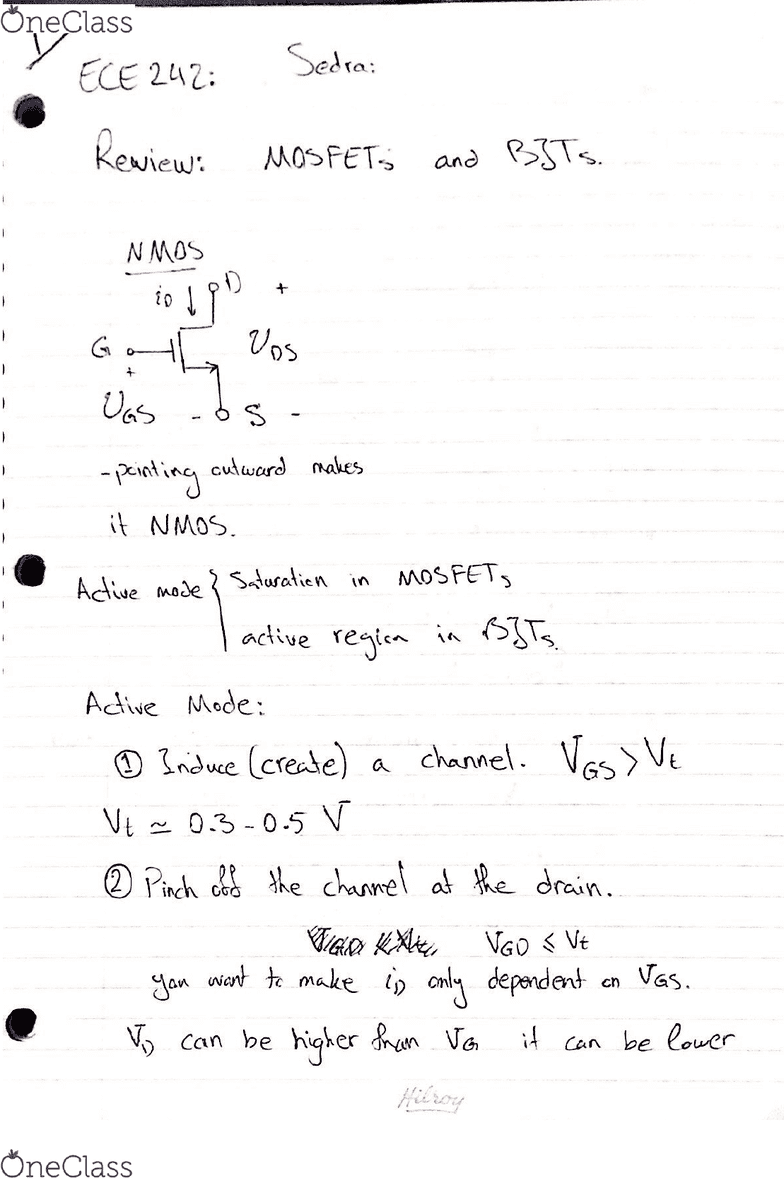 OneClass
ECE 242: Sedra:
Review: MOSFETs and BJTs.
NMOS
iD D +
G vDS
+
vGS - S -
- pointing outward makes
it NMOS.
Active mode { Saturation in MOSFETs
active region in BJTs.
Active Mode:
① Induce (create) a channel. VGS > Vt
Vt ≃ 0.3 - 0.5 V
② Pinch off the channel at the drain.
VGD ≤ Vt
you want to make iD only dependent on VGS.
VD can be higher than VG it can be lower
Hilroy
OneClass